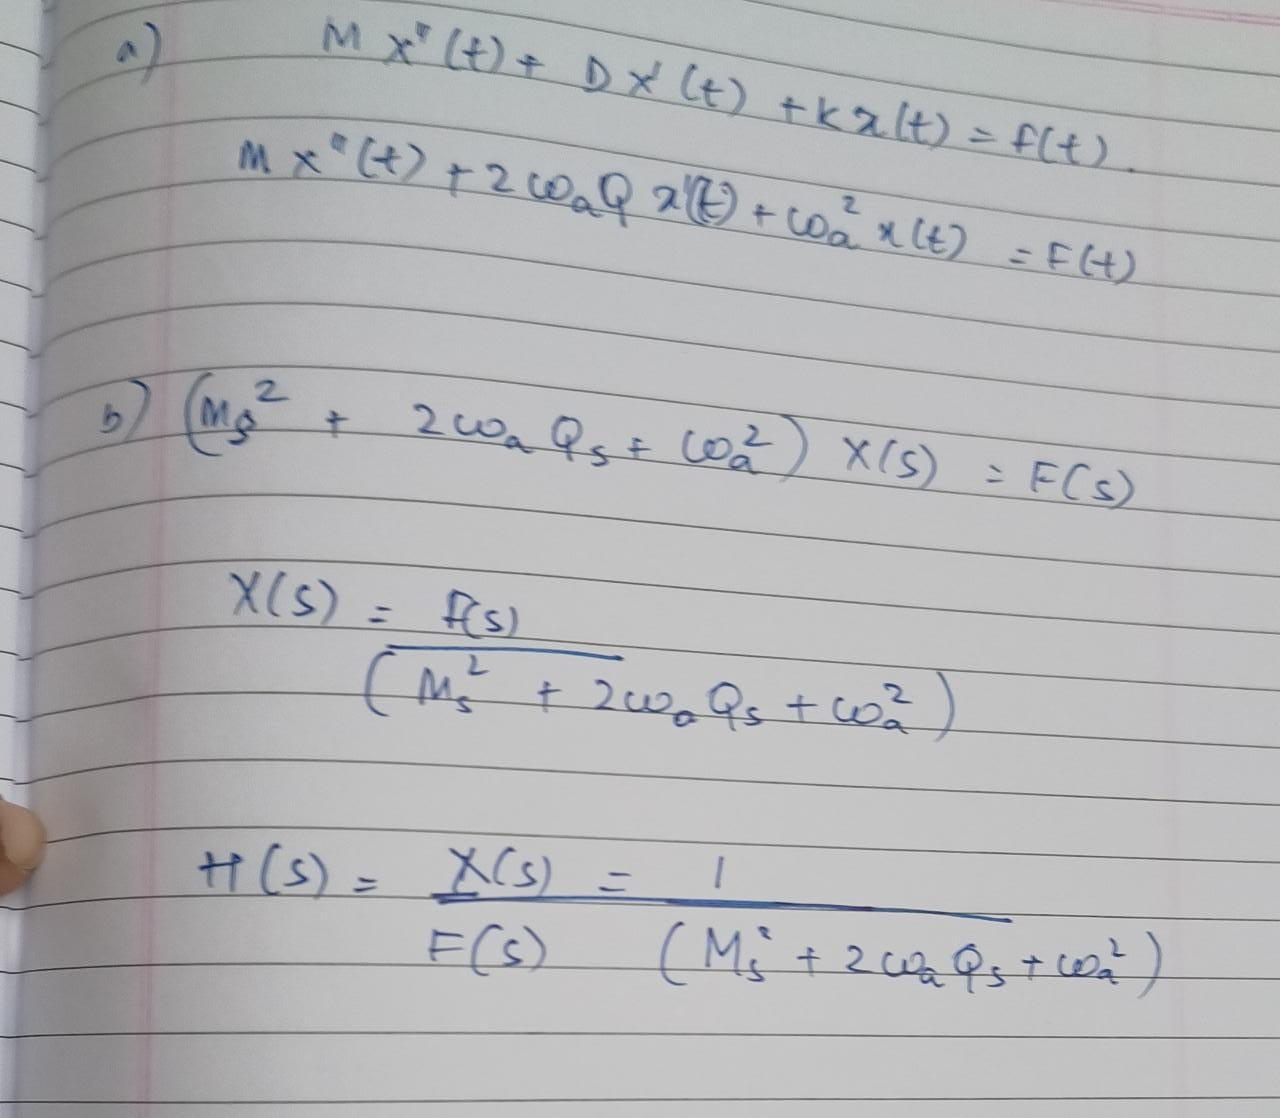 a) M x"(t) + D x'(t) + k x(t) = f(t).
M x"(t) + 2 ωₐ Q x'(t) + ωₐ² x(t) = F(t)
b) (Ms² + 2 ωₐ Qs + ωₐ²) X(s) = F(s)
X(s) = F(s)
(Ms² + 2 ωₐ Qs + ωₐ²)
H(s) = X(s) = 1
F(s) (Ms² + 2 ωₐ Qs + ωₐ²)